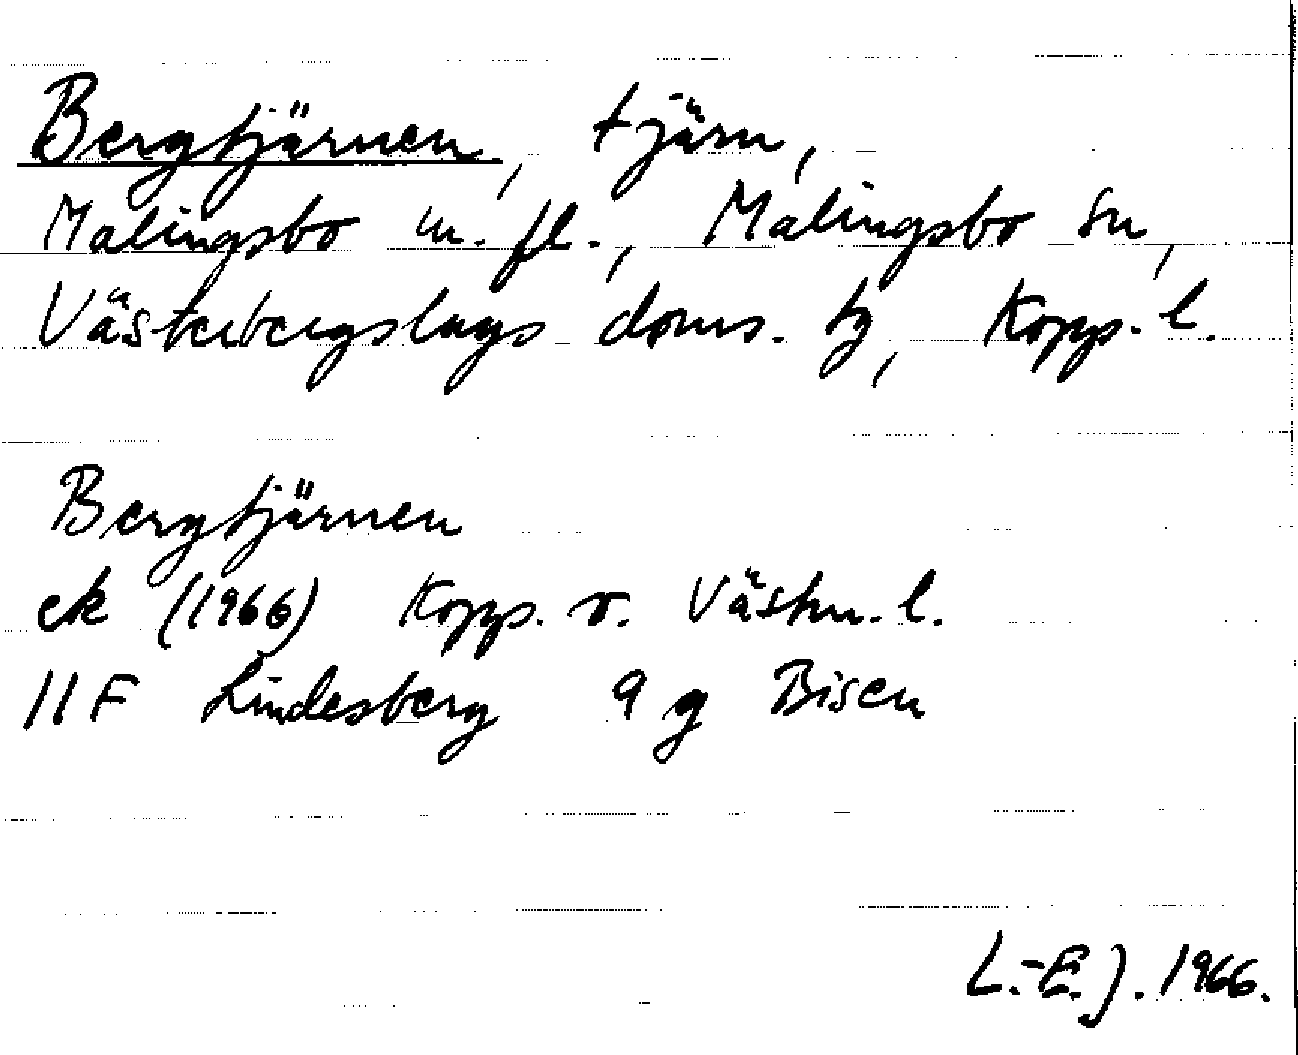 Bergtjärnen, tjärn,
Malingsbo m. fl., Malingsbo sn,
Västerbergslags doms. tg, Kopp. l.
Bergtjärnen
ek (1966) Kopp. o. Västm. l.
11 F Lindesberg 9 g Bisen
L.-E. J. 1966.